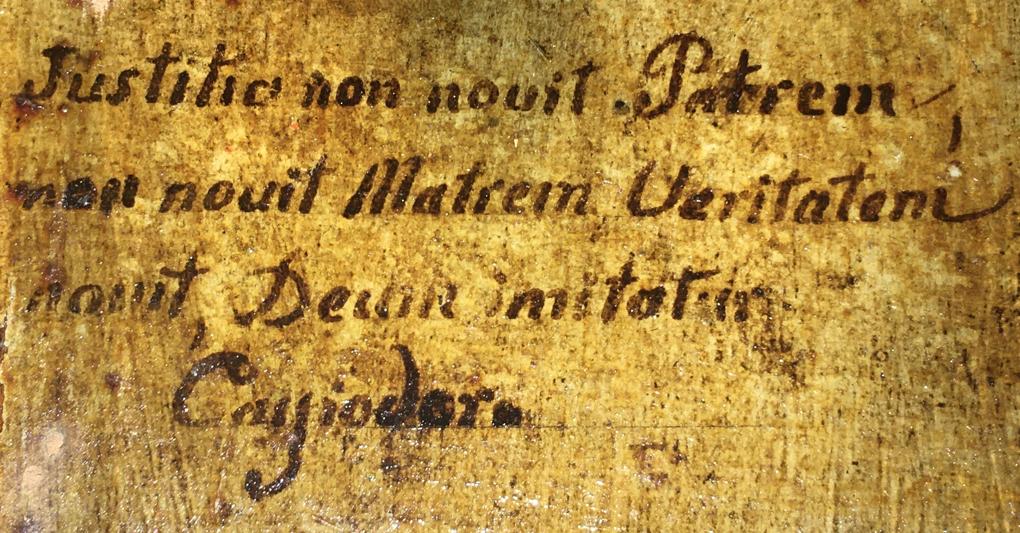 Justitia non nouit Patrem,
non nouit Matrem Veritatem
nouit, Deum imitatur
Cassiodoro